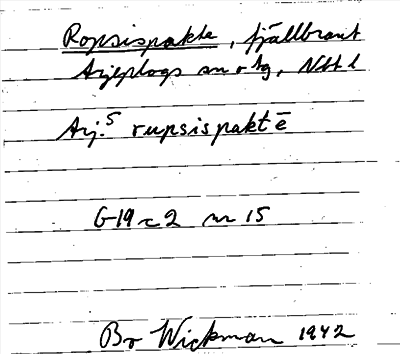 Ropsispakte, fjällbrant
Arjeplogs sn o tg, Nbtl
Arj.5 rupsispaktē
G-19 c 2 nr 15
Bo Wickman 1942